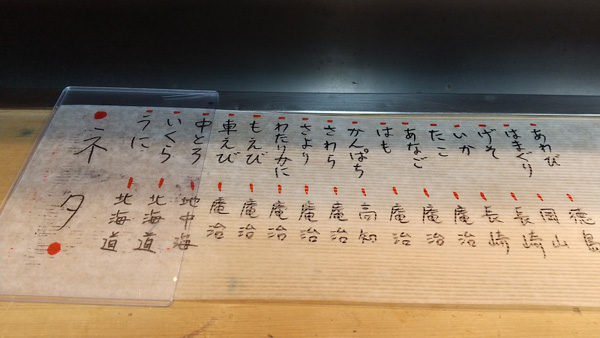 ネタ
うに 北海道
いくら 北海道
中とろ 地中海
車えび 庵治
もえび 庵治
わたりかに 庵治
さより 庵治
さわら 庵治
かんぱち 高知
はも 庵治
あなご 庵治
たこ 庵治
いか 長崎
げそ 長崎
はまぐり 岡山
あわび 徳島